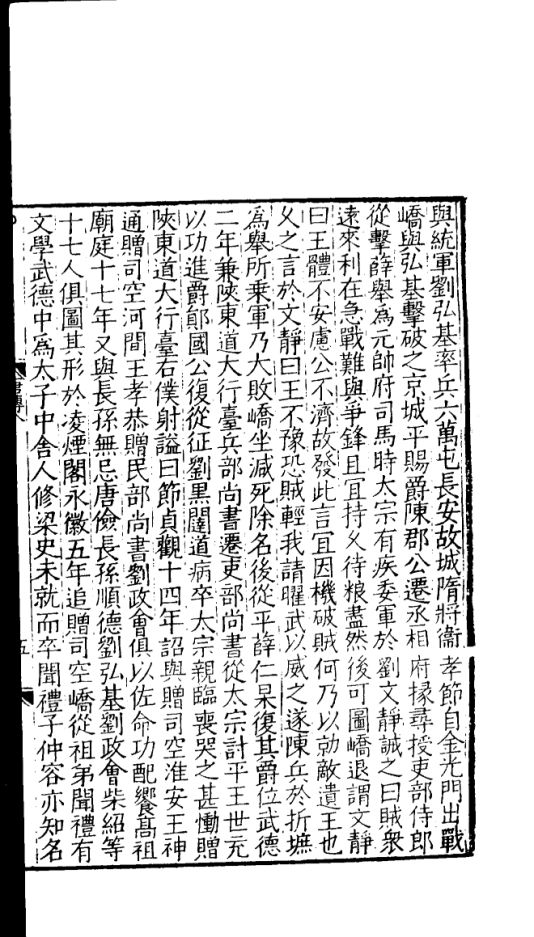 與統軍劉弘基率兵六萬屯長安故城隋將衞孝節自金光門出戰
嶠與弘基擊破之京城平賜爵陳郡公遷丞相府掾尋授吏部侍郎
從擊薛舉爲元帥府司馬時太宗有疾委軍於劉文靜誡之曰賊衆
遠來利在急戰難與爭鋒且宜持久待粮盡然後可圖嶠退謂文靜
曰王體不安慮公不濟故發此言宜因機破賊何乃以勍敵遺王也
久之言於文靜曰王不豫恐賊輕我請曜武以威之遂陳兵於折墌
爲舉所乗軍乃大敗嶠坐減死除名後從平薛仁杲復其爵位武德
二年兼陝東道大行臺兵部尚書遷吏部尚書從太宗討平王世充
以功進爵鄖國公復從征劉黑闥道病卒太宗親臨喪哭之甚慟贈
陝東道大行臺右僕射謚曰節貞觀十四年詔與贈司空淮安王神
通贈司空河間王孝恭贈民部尚書劉政會俱以佐命功配饗髙祖
廟庭十七年又與長孫無忌唐儉長孫順德劉弘基劉政會柴紹等
十七人俱圖其形於凌煙閣永徽五年追贈司空嶠從祖弟聞禮有
文學武德中爲太子中舍人修梁史未就而卒聞禮子仲容亦知名
五